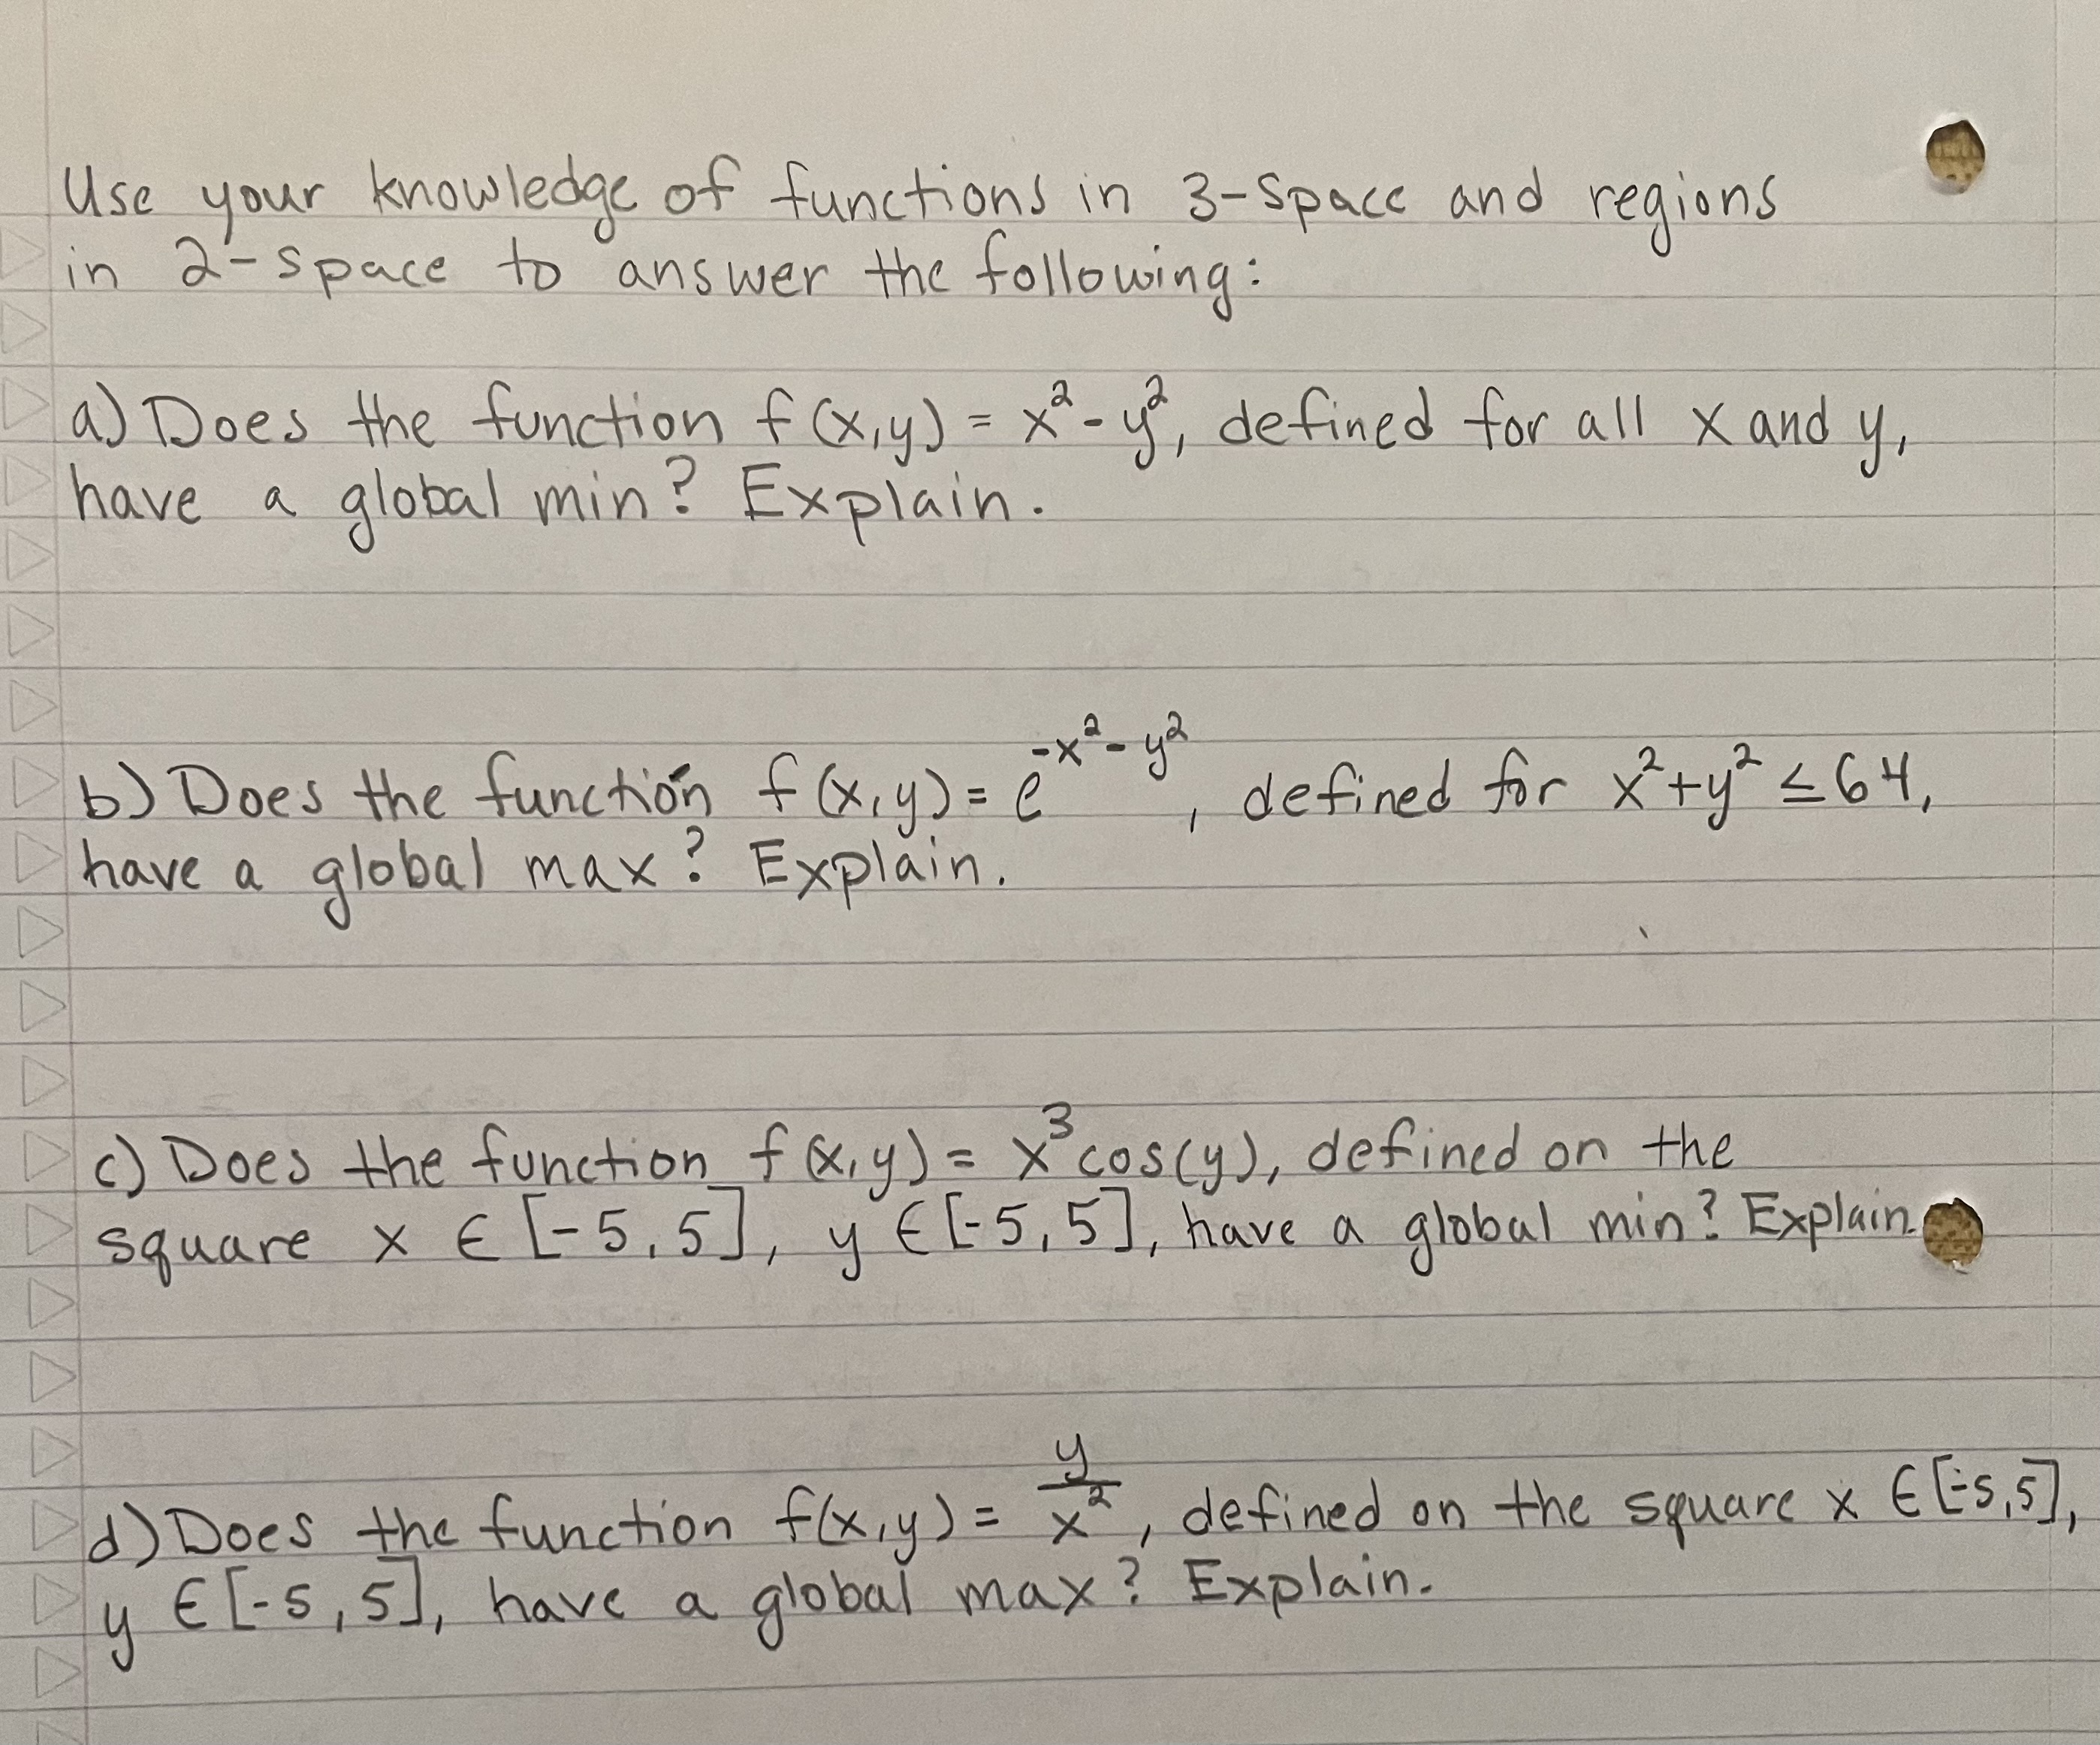 Use your knowledge of functions in 3-space and regions
in 2-space to answer the following:
a) Does the function f(x,y) = x² - y², defined for all x and y,
have a global min? Explain.
b) Does the function f(x,y) = e^(-x² - y²), defined for x² + y² ≤ 64,
have a global max? Explain.
c) Does the function f(x,y) = x³cos(y), defined on the
square x ∈ [-5,5], y ∈ [-5,5], have a global min? Explain.
d) Does the function f(x,y) = y/x², defined on the square x ∈ [-5,5],
y ∈ [-5,5], have a global max? Explain.